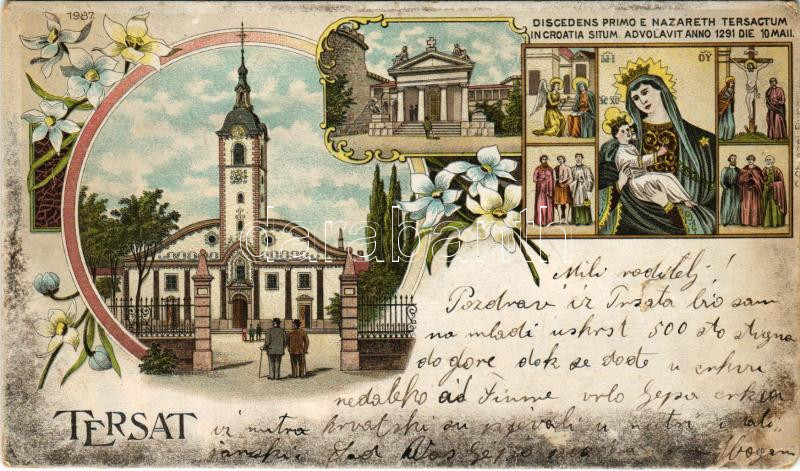 1987.
DISCEDENS PRIMO E NAZARETH TERSACTUM
IN CROATIA SITUM ADVOLAVIT ANNO 1291 DIE 10 MAII.
darabanth
Mili roditelj!
Pozdrav iz Trsata bio sam
na mladi uskrst 500 sto stigna
do gore dok se dođe u crkvu
nedaleko od Fiume vrlo lepa crkva
iz nutra hrvatski su pjevali u nutri i tali
janski.
TERSAT